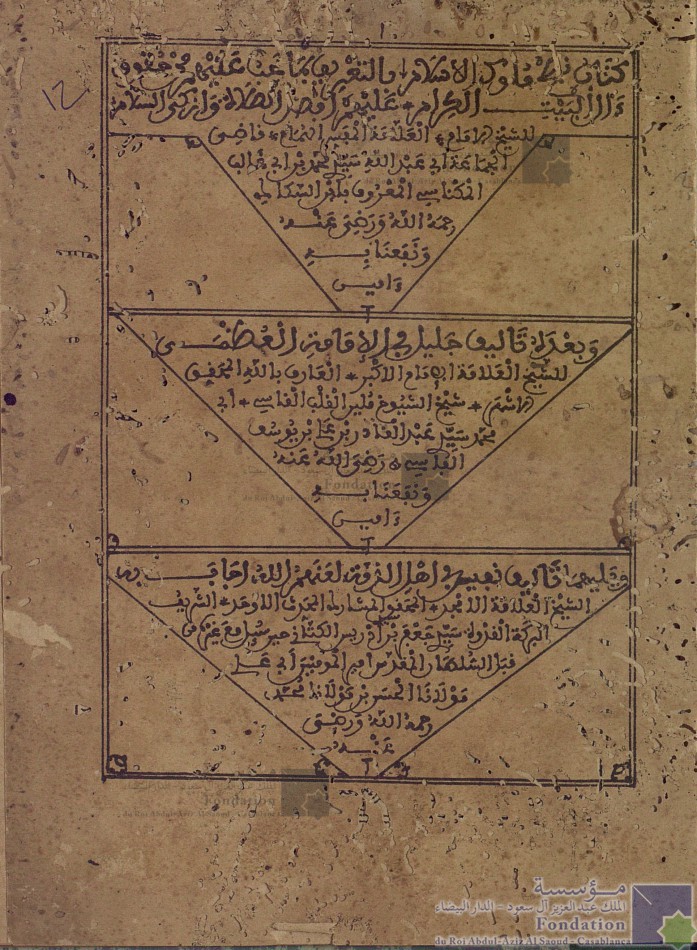 كتاب نصح ملوك الإسلام بالتعريف بما يجب عليهم من حقوق
ءال البيت الكرام * عليهم أفضل الصلاة وأزكى السلام
للشيخ الإمام * العلامة الفقيه الهمام * قاضي
الجماعة أبي عبد الله سيدي محمد بن أبي غالب
المكناسي المعروف بابن السكاك
رحمه الله ورضي عنه
ونفعنا به
ءامين
وبعده تأليف جليل في الإمامة العظمى
للشيخ العلامة الإمام الأكبر * العارف بالله
شيخ الشيوخ أبي
محمد سيدي عبد القادر بن علي بن يوسف
الفاسي * رضي الله عنه
ونفعنا به
ءامين
ويليهما تأليف نفيس في أهل الذمة لعنهم الله أجاب به
الشيخ العلامة الأمجد * المحقق المشارك المحدث الأوحد * الشريف
البركة القدوة سيدي جعفر بن إدريس الكتاني حين سئل مع غيره من
قبل السلطان المقدس أمير المومنين أبي علي
مولانا الحسن بن مولانا محمد
رحمه الله ورضي
عنه
مؤسسة
الملك عبد العزيز آل سعود - الدار البيضاء
Fondation
du Roi Abdul-Aziz Al Saoud - Casablanca